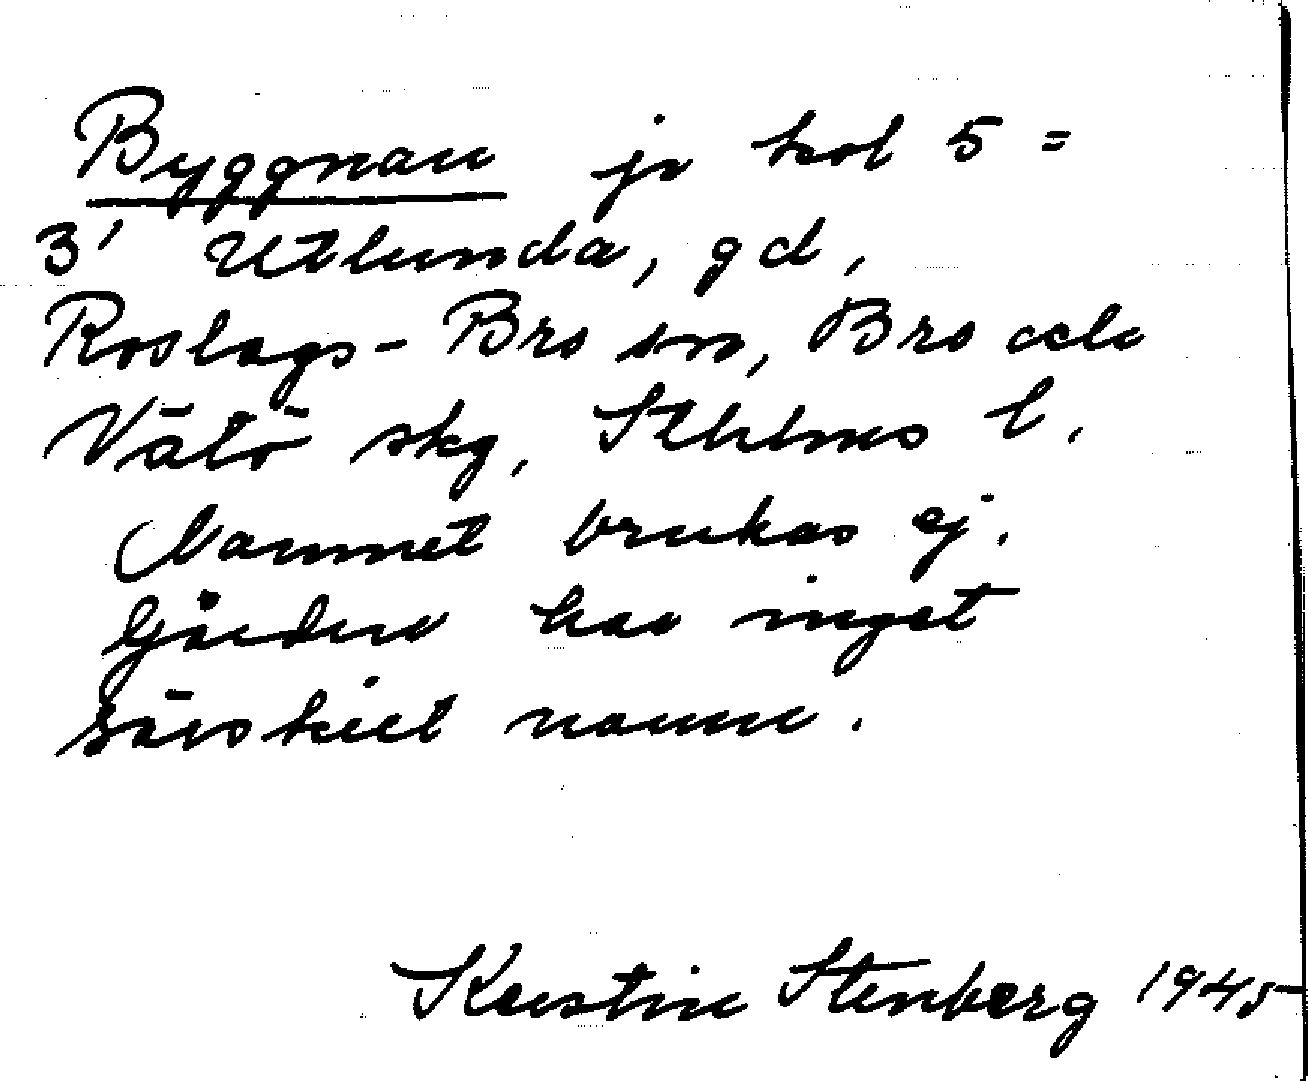 Byggnan jr kol 5 =
3' Utlunda, gd,
Roslags-Bro sn, Bro och
Vätö skg, Sthlms l.
Namnet brukas ej.
Gården har inget
särskilt namn.
Kerstin Stenberg 1945